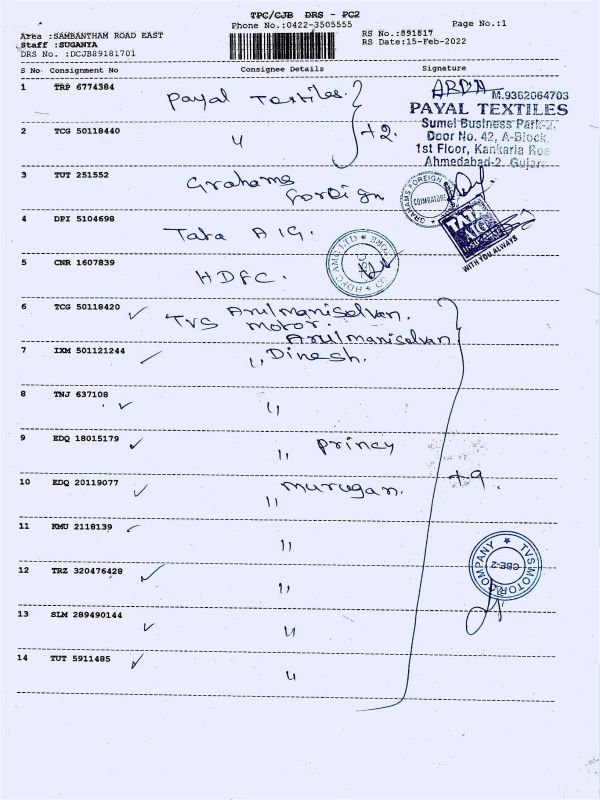 TPC/CJB DRS - PC2
Phone No.:0422-3505555
Page No.:1
Area :SAMBANTHAM ROAD EAST
RS No.:891817
Staff :SUGANYA
RS Date:15-Feb-2022
DRS No. :DCJB89181701
S No Consignment No Consignee Details Signature
1 TRP 6774384 Payal Textiles.
M.9362064703
PAYAL TEXTILES
Sumel Business Park-2,
Door No. 42, A-Block,
1st Floor, Kankaria Roa
Ahmedabad-2. Gujara
2 TCG 50118440 " +2.
3 TUT 251552 Grahams
Foreign
GRAHAMS FOREIGN
COIMBATORE
4 DPI 5104698 Tata AIG.
TATA
AIG
WITH YOU ALWAYS
5 CNR 1607839 HDFC.
HDFC AMC LTD
6 TCG 50118420 Arulmaniselvan.
TVS motor.
Arulmaniselvan
7 IXM 501121244 " Dinesh.
8 TNJ 637108 "
9 EDQ 18015179 " princy
10 EDQ 20119077 murugan. +9.
"
11 KMU 2118139 "
12 TRZ 320476428 "
TVS MOTOR COMPANY
CBE-2
13 SLM 289490144 "
14 TUT 5911485 "